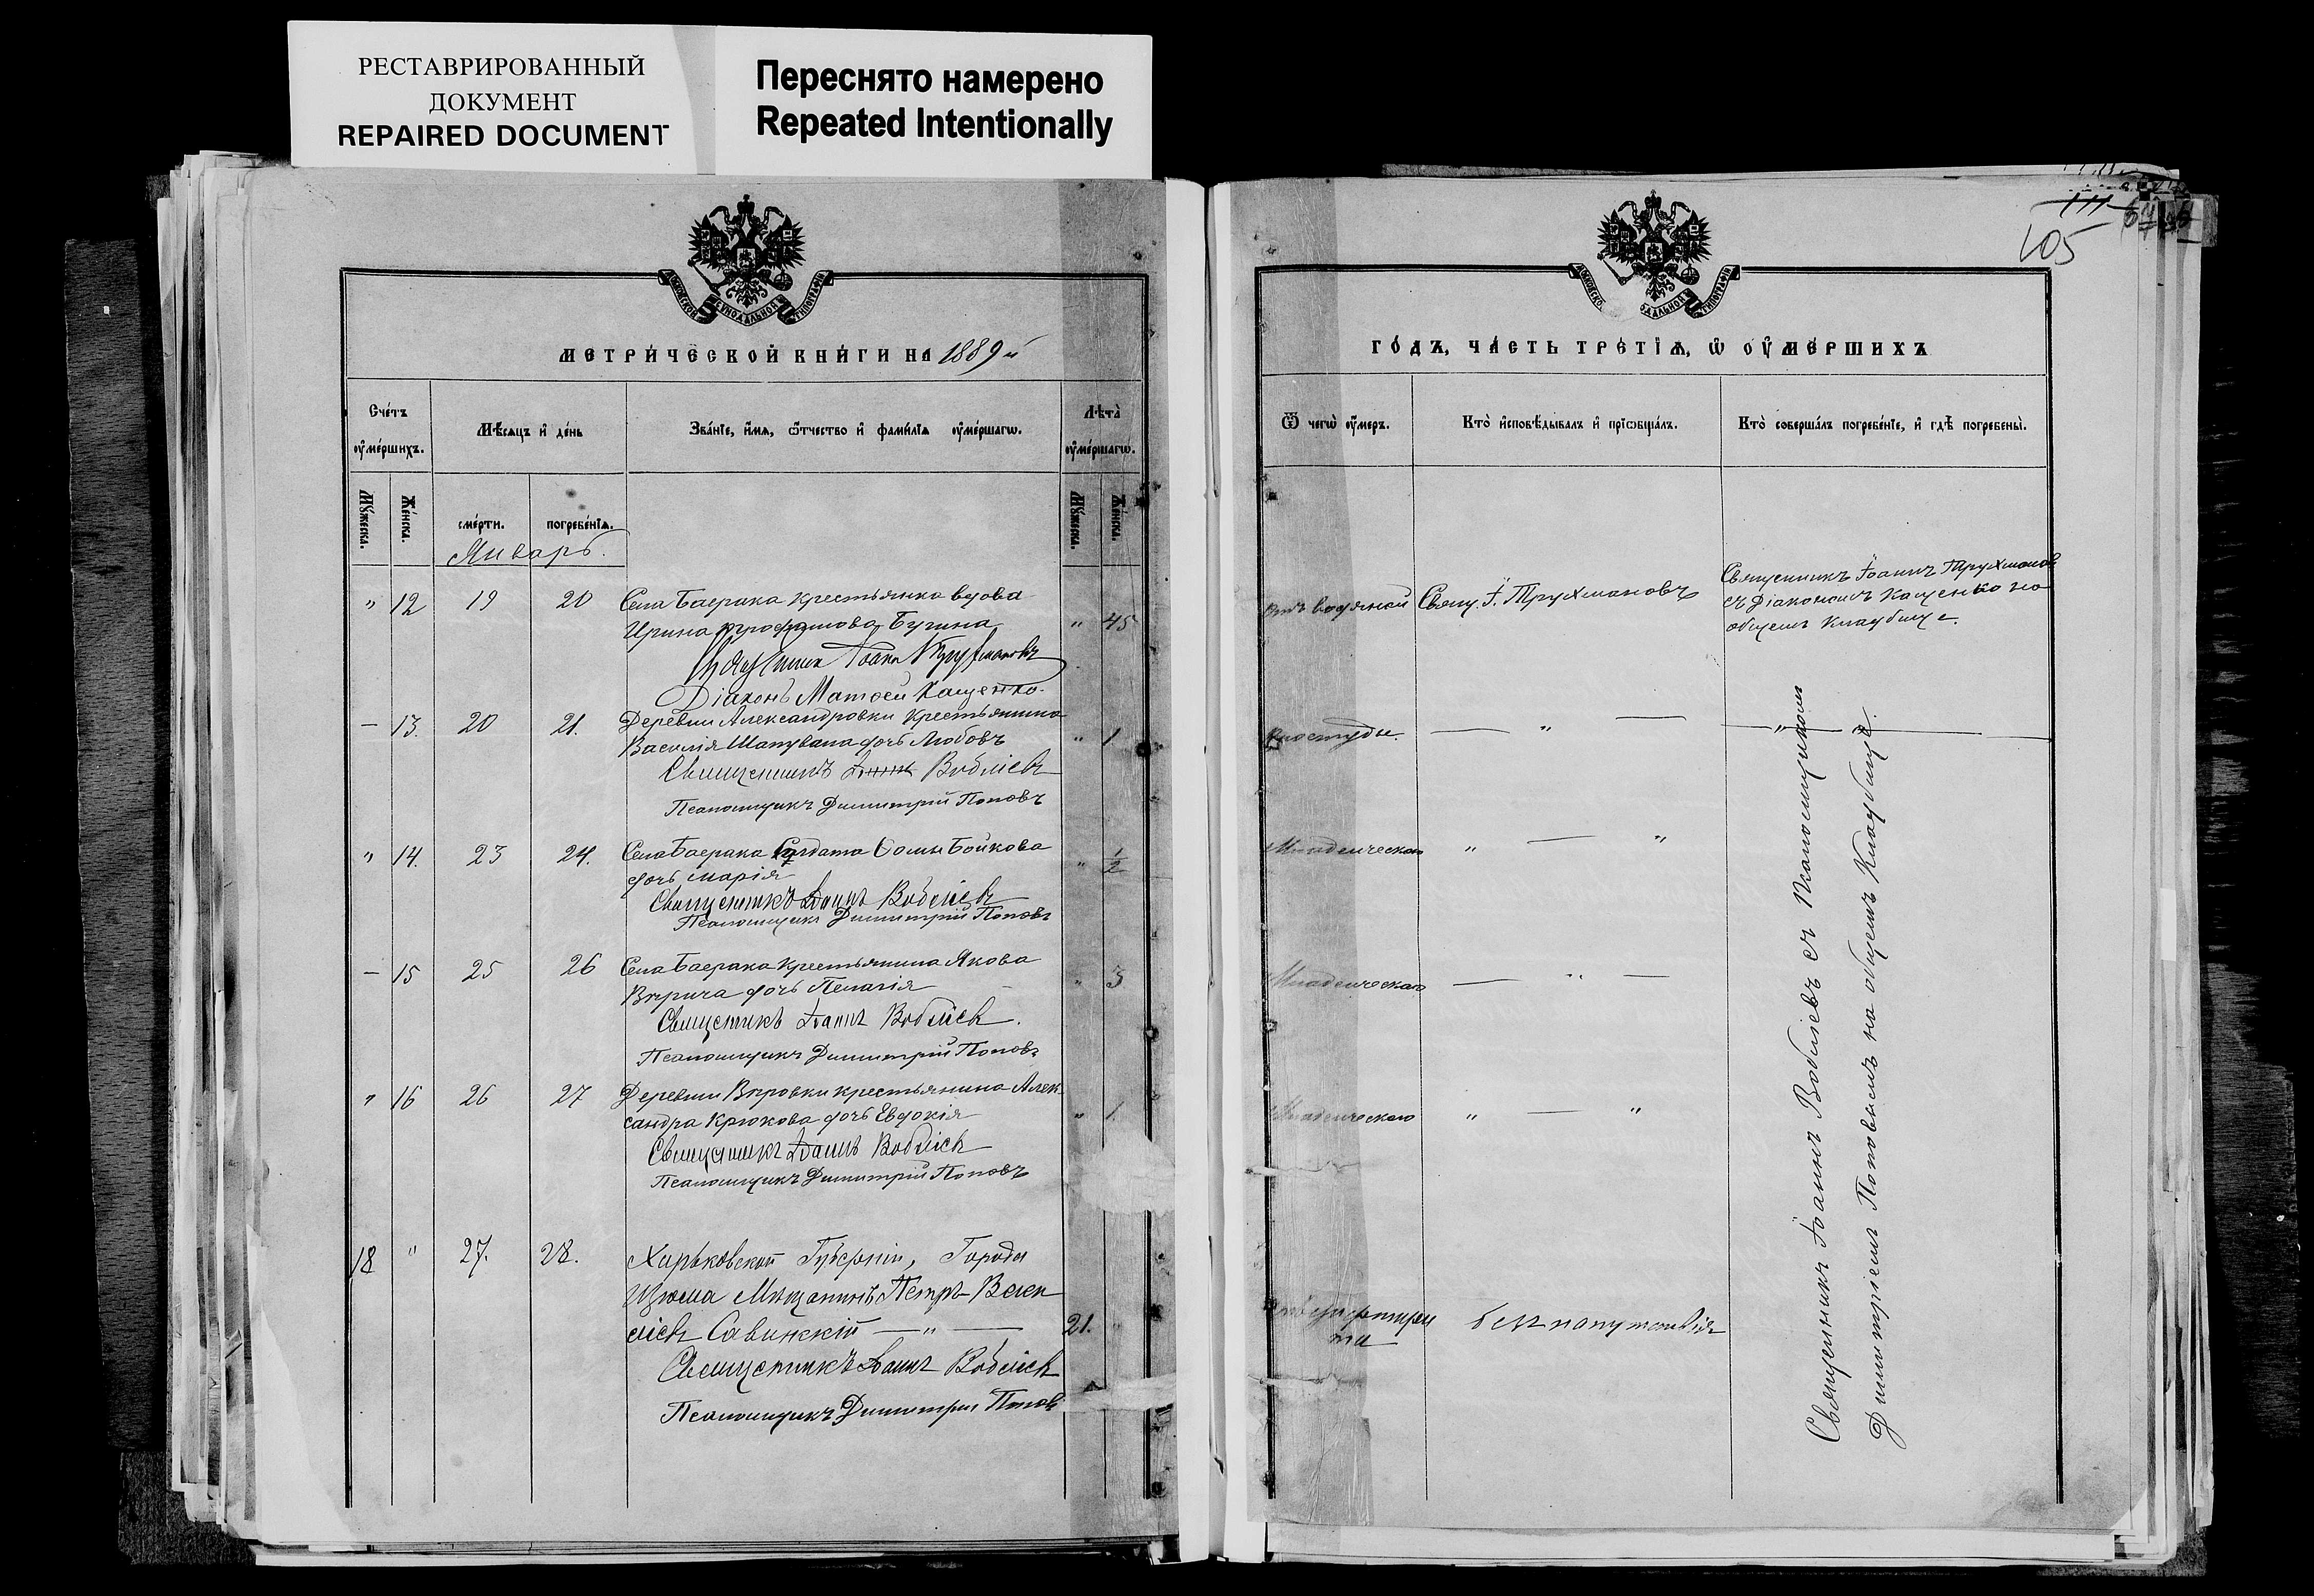 РЕСТАВРИРОВАННЫЙ
ДОКУМЕНТ
REPAIRED DOCUMENT
Переснято намерено
Repeated Intentionally
МЕТРИЧЕСКОЙ КНИГИ НА 1889й
Счетъ умершихъ.
Мѣсяцъ и день
Званіе, имя, отчество и фамилія умершаго.
Лѣта умершаго.
Мужеска.
Женска.
смерти.
погребенія.
Мужеска.
Женска.
Январь.
" 12 19 20 Села Баерака крестьянка вдова
Ирина Бугина " 45
Іоаннъ Трухмановъ
Діаконъ Матѳей Кащенко.
— 13. 20 21. Деревни Александровки крестьянина
Василія Шапувала дочь Любовь " 1
Священникъ Воблiевъ
Псаломщикъ Димитрій Поповъ
" 14. 23 24. Села Баерака Солдата Ѳомы Бойкова
дочь Марія " 1/2
Священникъ Іоаннъ Воблiевъ
Псаломщикъ Димитрій Поповъ
— 15 25 26 Села Баерака крестьянина Якова
Вѣрича дочь Пелагія " 3
Священникъ Іоаннъ Воблiевъ.
Псаломщикъ Димитрій Поповъ
" 16 26 27 Деревни Вѣровки крестьянина Алек
сандра Крюкова дочь Евдокія " 1.
Священникъ Іоаннъ Воблiевъ
Псаломщикъ Димитрій Поповъ
18 " 27. 28. Харьковской Губерніи, Города
Изюма Мѣщанинъ Петръ
Савинскій — " — 21. "
Священникъ Іоаннъ Воблiевъ
Псаломщикъ Димитрій Поповъ
111
105
ГОДЪ, ЧАСТЬ ТРЕТІЯ, Ѡ УМЕРШИХЪ
Ѿ чегѡ умеръ.
Кто исповѣдывалъ и пріобщалъ.
Кто совершалъ погребеніе, и гдѣ погребены.
Отъ водяной
Свящ. І. Трухмановъ
Священникъ Іоаннъ Трухмановъ
съ Діакономъ Кащенко на
общемъ кладбище.
простуды. — " — — " —
Младенческаго " — "
Младенческаго — " —
Младенческаго " — "
без напутствія
Священникъ Іоаннъ Воблiевъ съ Псаломщикомъ
Димитріемъ Поповымъ на общемъ Кладбище.